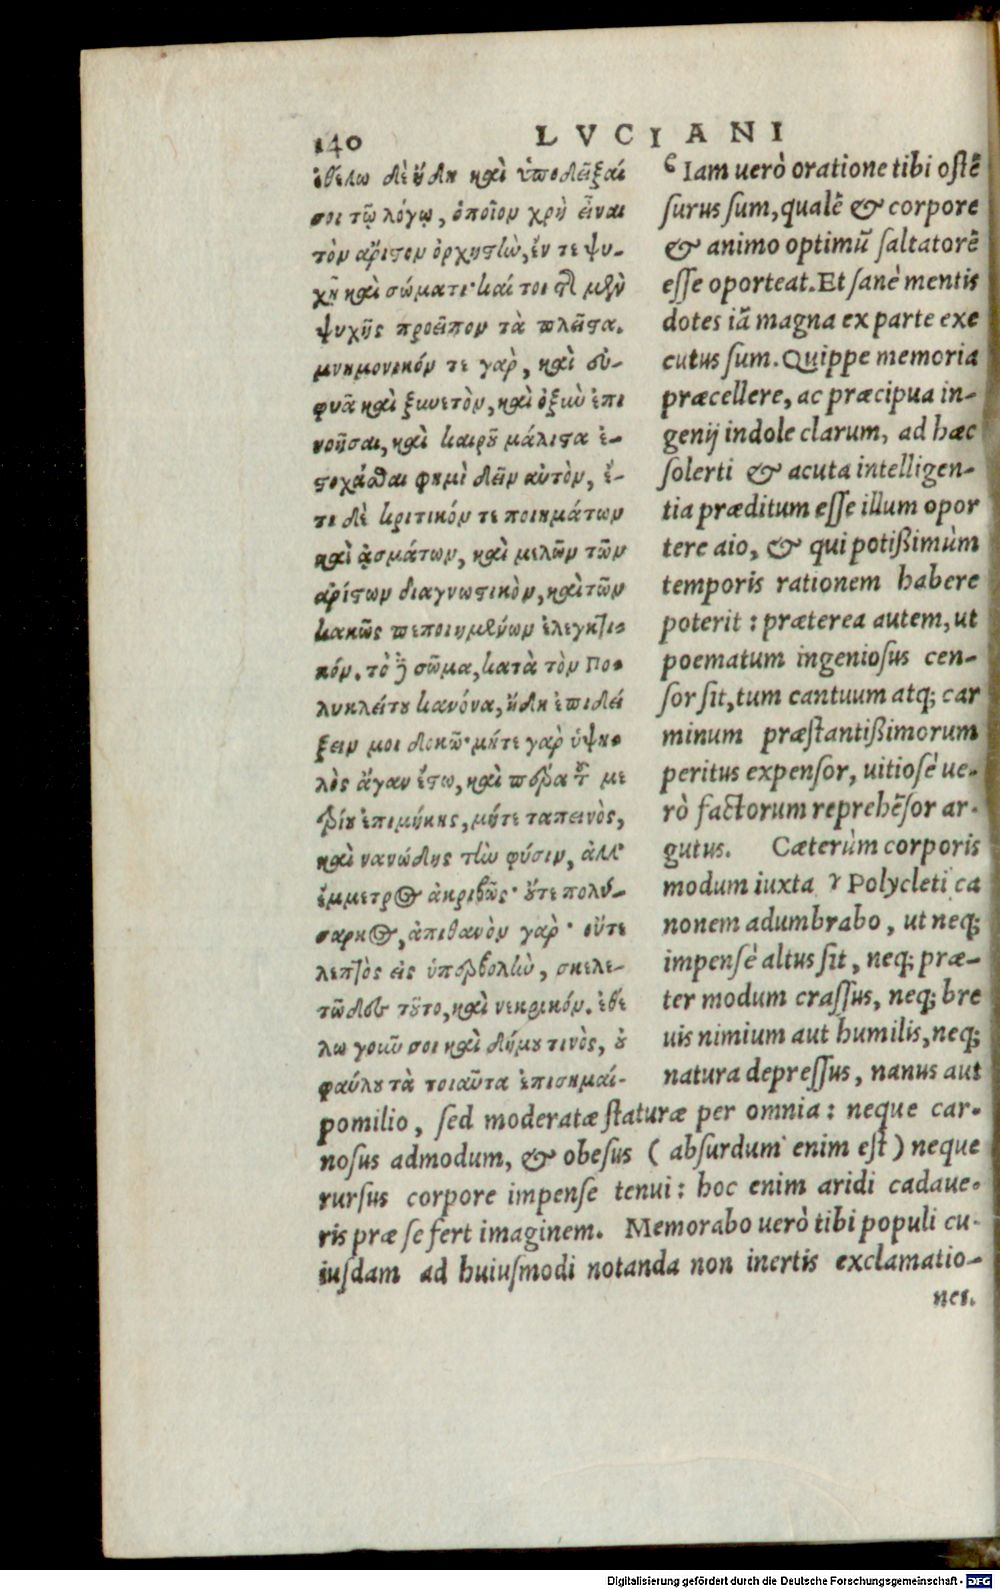 140 LVCIANI
ἐθέλω δὲ ἤδη καὶ ὑποδεῖξαί
σοι τῷ λόγῳ, ὁποῖον χρὴ εἶναι
τὸν ἄριστον ὀρχηστὴν, ἔν τε ψυ-
χῇ καὶ σώματι· καί τοι τῆς μὲν
ψυχῆς προεῖπον τὰ πλεῖστα.
μνημονικόν τε γὰρ, καὶ εὐ-
φυᾶ καὶ ξυνετὸν, καὶ ὀξὺν ἐπι
νοῆσαι, καὶ καιροῦ μάλιστα ἐ-
στοχάσθαι φημὶ δεῖν αὐτὸν, ἔ-
τι δὲ κριτικόν τε ποιημάτων
καὶ ᾀσμάτων, καὶ μελῶν τῶν
ἀρίστων διαγνωστικὸν, καὶ τῶν
κακῶς πεποιημένων ἐλεγκτι-
κόν. τὸ δὲ σῶμα, κατὰ τὸν Πο-
λυκλείτου κανόνα, ἤδη ἐπιδεί
ξειν μοι δοκῶ· μήτε γὰρ ὑψη-
λὸς ἄγαν ἔστω, καὶ πέρα τοῦ με
τρίου ἐπιμήκης, μήτε ταπεινὸς,
καὶ νανώδης τὴν φύσιν, ἀλλ'
ἔμμετρος ἀκριβῶς· οὔτε πολύ-
σαρκος, ἀπίθανὸν γὰρ· οὔτε
λεπτὸς εἰς ὑπερβολὴν, σκελε-
τῶδες τοῦτο, καὶ νεκρικόν. ἐθέ
λω γοῦν σοι καὶ δήμου τινὸς, οὐ
φαύλου τὰ τοιαῦτα ἐπισημαί-
ϛ Iam uerò oratione tibi ostẽ
surus sum, qualẽ & corpore
& animo optimũ saltatorẽ
esse oporteat. Et sanè mentis
dotes iã magna ex parte exe
cutus sum. Quippe memoria
præcellere, ac præcipua in-
genij indole clarum, ad hæc
solerti & acuta intelligen-
tia præditum esse illum opor
tere aio, & qui potißimùm
temporis rationem habere
poterit : præterea autem, ut
poematum ingeniosus cen-
sor sit, tum cantuum atq; car
minum præstantißimorum
peritus expensor, uitiosè ue-
rò factorum reprehẽsor ar-
gutus. Cæterùm corporis
modum iuxta γ Polycleti ca
nonem adumbrabo, ut neq;
impensè altus sit, neq; præ-
ter modum crassus, neq; bre
uis nimium aut humilis, neq;
natura depressus, nanus aut
pomilio, sed moderatæ staturæ per omnia : neque car-
nosus admodum, & obesus ( absurdum enim est ) neque
rursus corpore impense tenui : hoc enim aridi cadaue-
ris præ se fert imaginem. Memorabo uerò tibi populi cu-
iusdam ad huiusmodi notanda non inertis exclamatio-
nes.
Digitalisierung gefördert durch die Deutsche Forschungsgemeinschaft - DFG